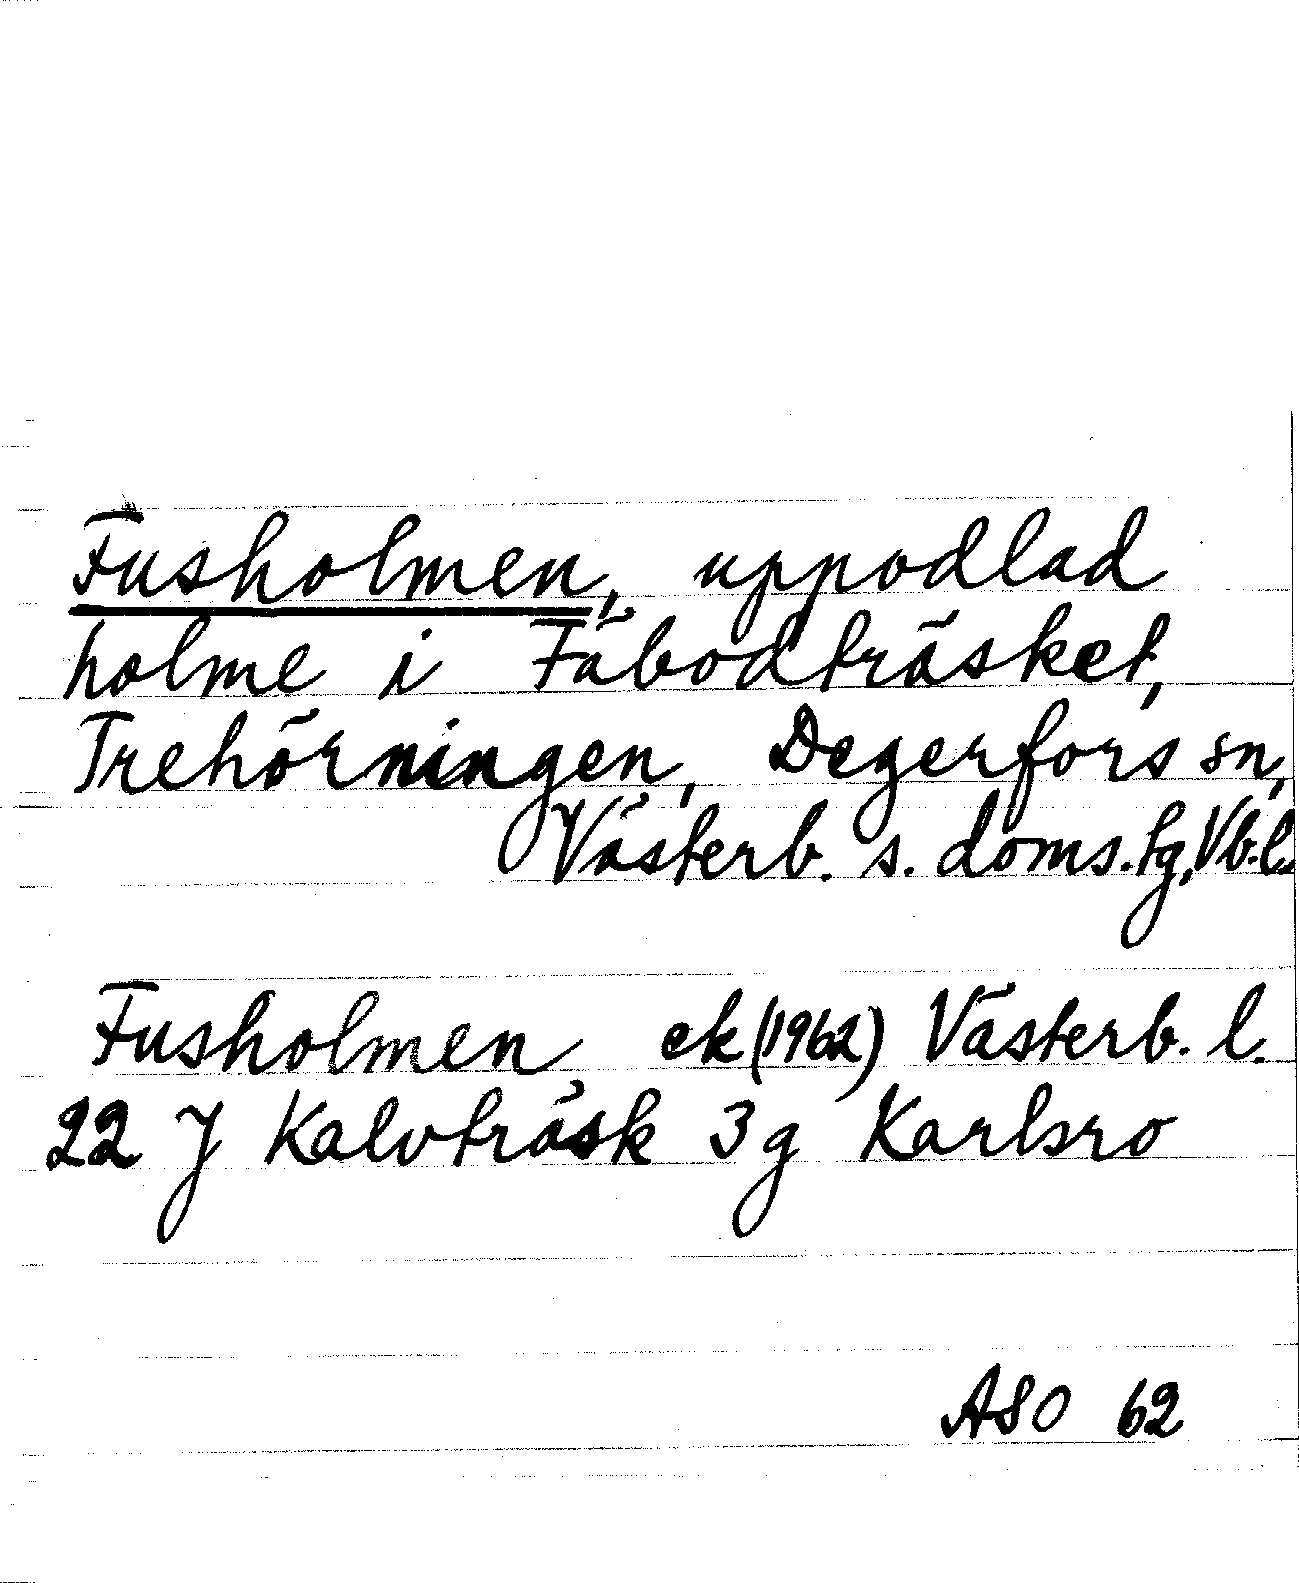 Fusholmen, uppodlad
holme i Fäbodträsket,
Trehörningen, Degerfors sn,
Västerb. s. doms. tg, Vb. l.
Fusholmen ek (1962) Västerb. l.
22 J Kalvträsk 3g Karlsro
ASO 62